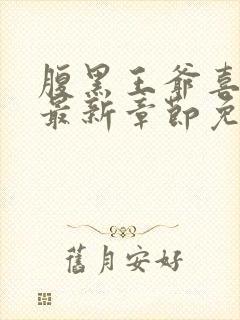 腹黑王爷喜
最新章节免
舊月安好